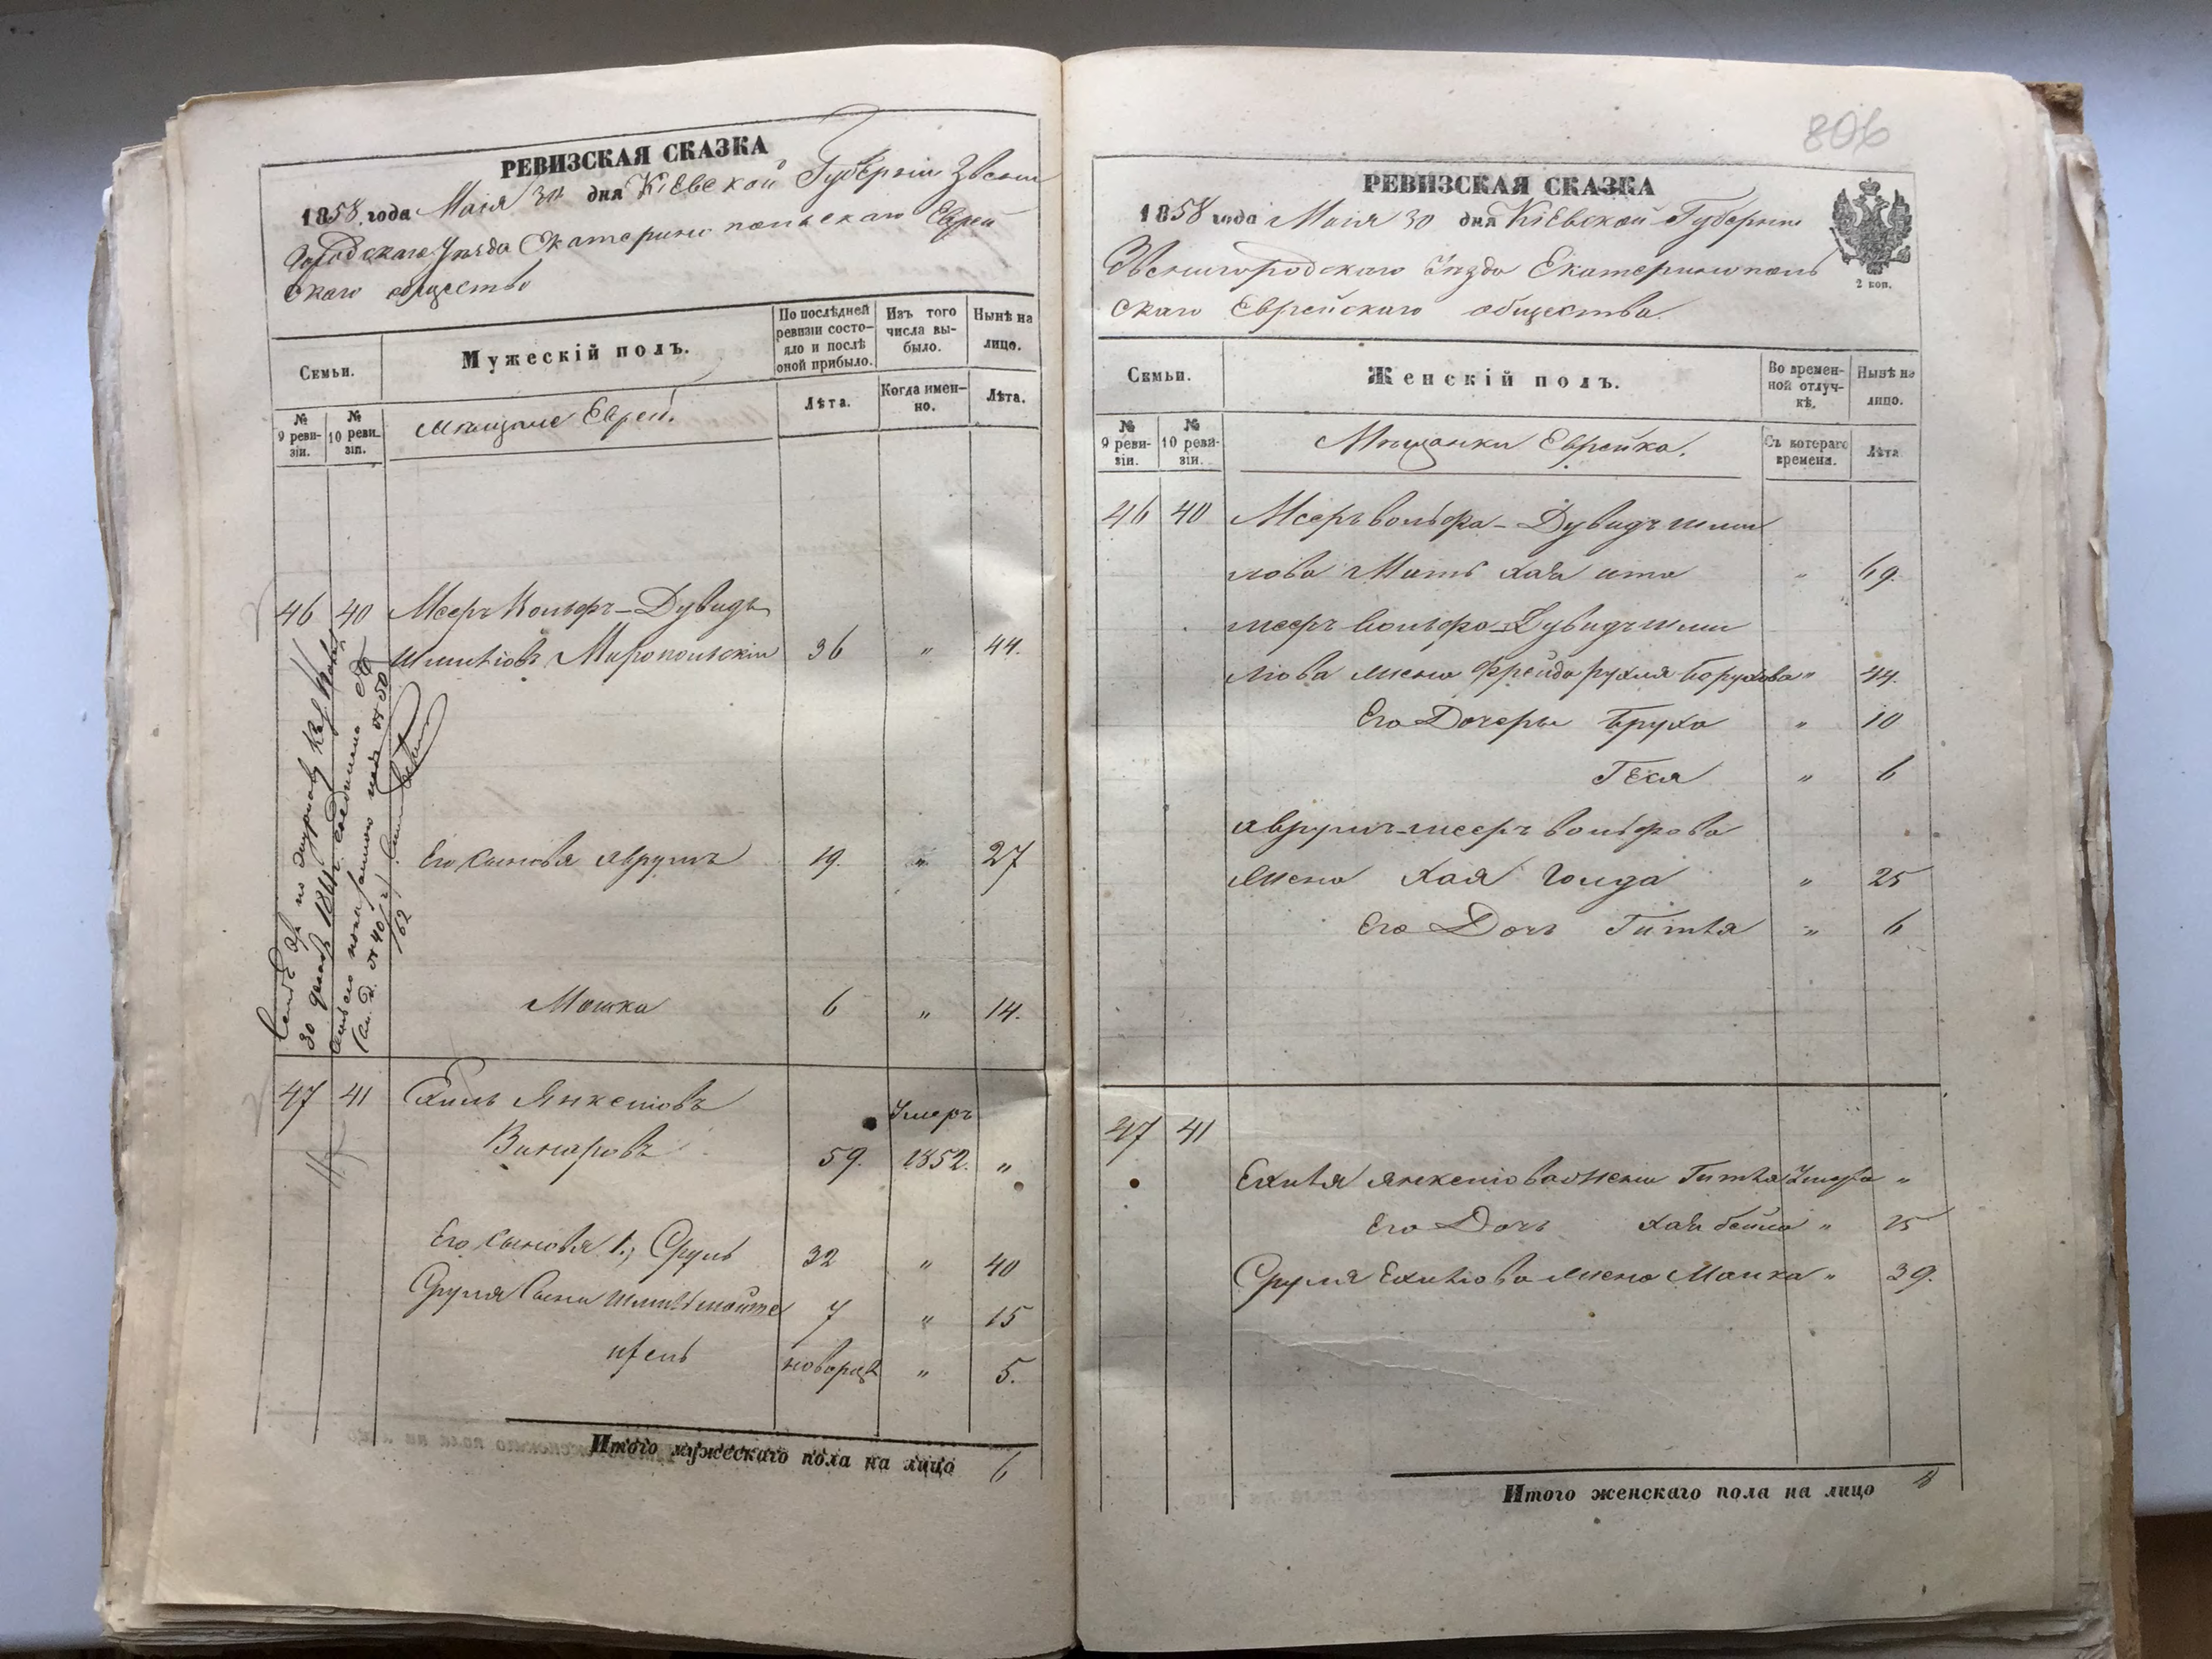 РЕВИЗСКАЯ СКАЗКА
1858 года Маія 30 дня Кіевской Губерніи Звени
городскаго Уѣзда Екатеринопольскаго Еврей
скаго общества
Семьи.
Мужескій полъ.
По послѣдней ревизіи состо-
яло и послѣ оной прибыло.
Изъ того числа вы-
было.
Нынѣ на лицо.
№ 9 реви-
зіи.
№ 10 реви-
зіи.
Мѣщане Евреи.
Лѣта.
Когда имен-
но.
Лѣта.
46 40 Мееръ Вольфъ-Дувидъ
Шмилiовъ Миропольскій 36 " 44.
Его Сыновья Аврумъ 19. " 27
Мошка 6 " 14.
30 1861
№ 40 № 50
162
47 41 Ехиль Янкеліовъ Умеръ
Винаровъ 59. 1852. "
Его Сыновья 1., Сруль 32 " 40
Сруля Сыны 7 " 15
новорожд " 5.
Итого мужескаго пола на лицо 6
806
РЕВИЗСКАЯ СКАЗКА
1858 года Маія 30 дня Кіевской Губерніи
Звенигородскаго Уѣзда Екатеринополь
скаго Еврейскаго общества.
2 коп.
Семьи.
Женскій полъ.
Во времен-
ной отлуч-
кѣ.
Нынѣ на лицо.
№ 9 реви-
зіи.
№ 10 реви-
зіи.
Мѣщанки Еврейка.
Съ котораго времени.
Лѣта
46 40 Мееръ Вольфа-Дувидъ Шми
лова Мать Хая Ита " 69.
Мееръ Вольфа-Дувидъ Шми
лiова Жена Фрейда Рухля Борухова " 44.
Его Дочеры Бруха " 10
Геся " 6
Аврумъ-Мееръ Вольфова
Жена Хая Голда " 25
Его Дочь Гитля " 6
47 41
Ехиля Янкеліова Жена Гитля Умерла "
Его Дочь Хая Бейла " 15
Сруля Ехилiова Жена Малка " 39.
Итого женскаго пола на лицо